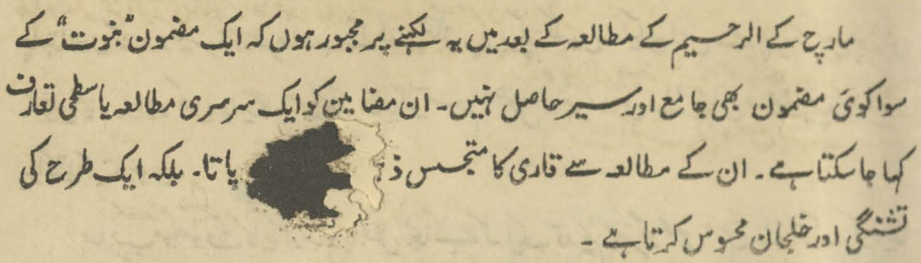 مارچ کے الرحیم کے مطالعہ کے بعد میں یہ لکھنے پر مجبور ہوں کہ ایک مضمون "بنوت" کے
سوا کوئی مضمون بھی جامع اور سیر حاصل نہیں۔ ان مضامین کو ایک سرسری مطالعہ یا سطحی تعارف
کہا جا سکتا ہے۔ ان کے مطالعہ سے قاری کا متجسس پاتا۔ بلکہ ایک طرح کی
تشنگی اور خلجان محسوس کرتا ہے۔